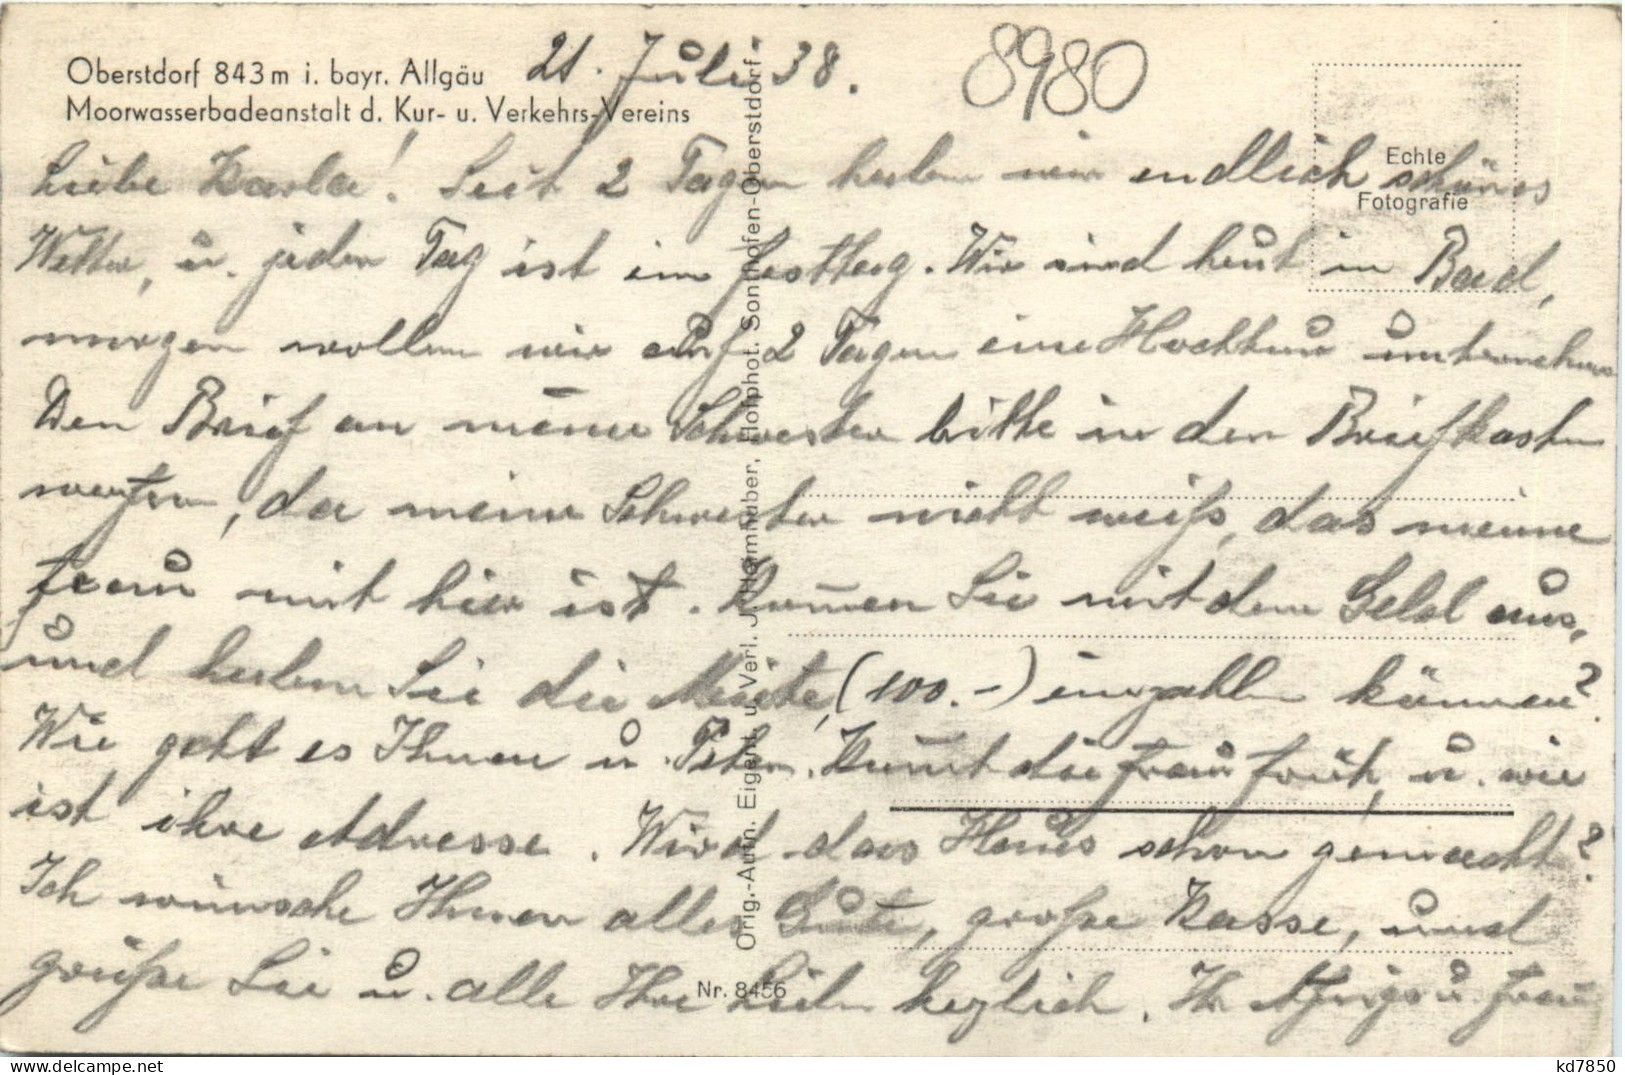 Oberstdorf 843 m i. bayr. Allgäu
Moorwasserbadeanstalt d. Kur- u. Verkehrs-Vereins
21. Juli 38.
8980
Echte
Fotografie
Liebe Karla! Seit 2 Tagen haben wir endlich schönes
Wetter, u. jeder Tag ist ein Festtag. Wir sind heut im Bad,
morgen wollen wir auf 2 Tagen eine Hochtour unternehmen
Den Brief an meine Schwester bitte in den Briefkasten
werfen, da meine Schwester nicht weiß, das meine
Frau mit hier ist. Kom̄en Sie mit dem Geld aus,
und haben Sie die Miete, (100.-) einzahlen können?
Wie geht es Ihnen u. Peter. Kom̄t die Frau früh, u. wie
ist ihre Adresse. Wird das Haus schon gemacht?
Ich wünsche Ihnen alles Gute, große Kasse, und
grüße Sie u. alle Ihre Lieben herzlich. Ihr u. Frau
Orig.-Aufn. Eigent. u. Verl. J. Heimhuber, Hofphot. Sonthofen-Oberstdorf
Nr. 8456
kd7850